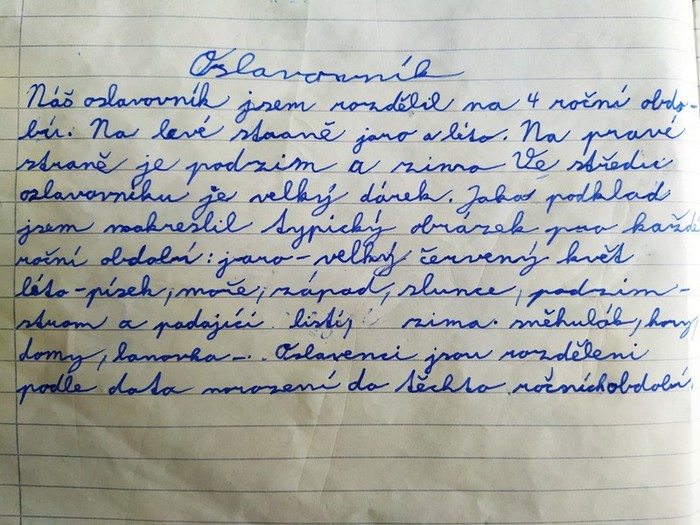 Oslavovník
Náš oslavovník jsem rozdělil na 4 roční obdo-
bí. Na levé straně jaro a léto. Na pravé
straně je podzim a zima Ve středu
oslavovníku je velký dárek. Jako podklad
jsem nakreslil typický obrázek pro každé
roční období: jaro - velký červený květ
léto - písek, moře, západ, slunce, podzim -
strom a padající listí, zima - sněhulák, hory,
domy, lanovka -. Oslavenci jsou rozděleni
podle data narození do těchto ročních období.